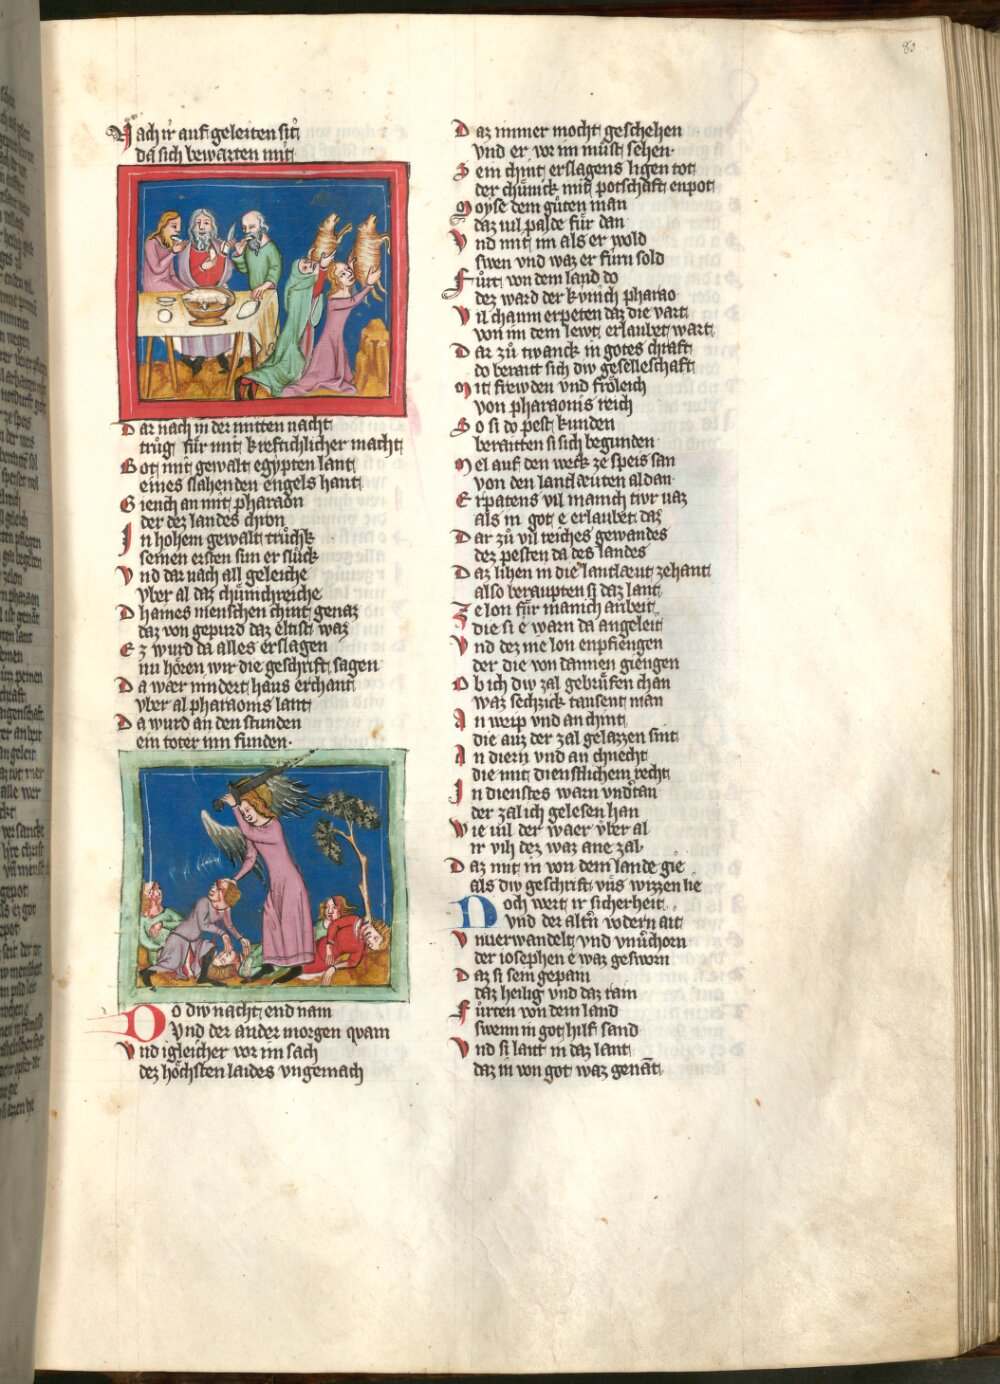 80
Nach ir auf geleiten sit
da sich bewarten mit
Dar nach in der mitten nacht
trůg für mit kreftichlicher macht
Got mit gewalt egypten lant
eines slahenden engels hant
Giench an mit pharaon
der dez landes chron
In hohem gewalt truchk
seinen ersten sun er sluck
Vnd dar nach all geleiche
vber al daz chünichreiche
Dhaines menschen chint genaz
daz von gepurd daz eltist waz
Ez wurd da alles erslagen
nu hören wir die geschrift sagen
Da waer nindert haus erchant
vber al pharaonis lant
Da wurd an den stunden
ein toter inn funden
Do diw nacht end nam
Vnd der ander morgen quam
Vnd igleicher vor im sach
dez höchsten laides vngemach
Daz immer mocht geschehen
vnd er vor im müst sehen
Sein chint erslagens ligen tot
der chünick mit potschaft enpot
Moyse dem gůten man
daz uil palde für dan
Vnd mit im als er wold
swen vnd waz er fürn sold
Fůrt von dem land do
dez ward der kynich pharao
Vil chaum erpeten daz die vart
von im dem lewt erlaubet wart
Dar zů twanck in gotes chraft
do berait sich diw geselleschaft
Mit frewden vnd frőleich
von pharaonis reich
So si do pest kunden
beraitten si sich begunden
Mel auf den weck ze speis san
von den lantlæuten aldan
Erpatens vil manich tivr uaz
als in got e erlaubet daz
Dar zů vil reiches gewandes
dez pesten da des landes
Daz lihen in die lantlæut zehant
also beraupten si daz lant
Ze lon für manich arbeit
die si e warn da angeleit
Vnd dez me lon enpfiengen
der die von dannen giengen
Ob ich diw zal gebrüfen chan
waz sechzick tausent man
An weip vnd an chint
die auz der zal gelazzen sint
An diern vnd an chnecht
die mit dienstlichem recht
In dienstes warn vndertan
der zal ich gelesen han
Wie uil der waer vber al
ir vih dez waz ane zal
Daz mit in von dem lande gie
als diw geschrift vns wizzen lie
Doch wert ir sicherheit
Vnd der altn vodern ait
Vnuerwandelt vnd vnuchorn
der iosephen e waz gesworn
Daz si sein gepain
daz heilig vnd daz rain
Fůrten von dem land
swenn in got hilf sand
Vnd si lait in daz lant
daz in von got waz genant